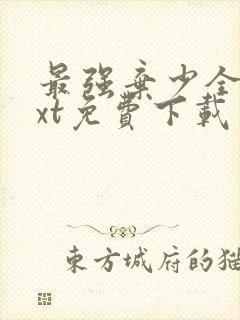 最強棄少全
xt免費下載
東方城府的猫